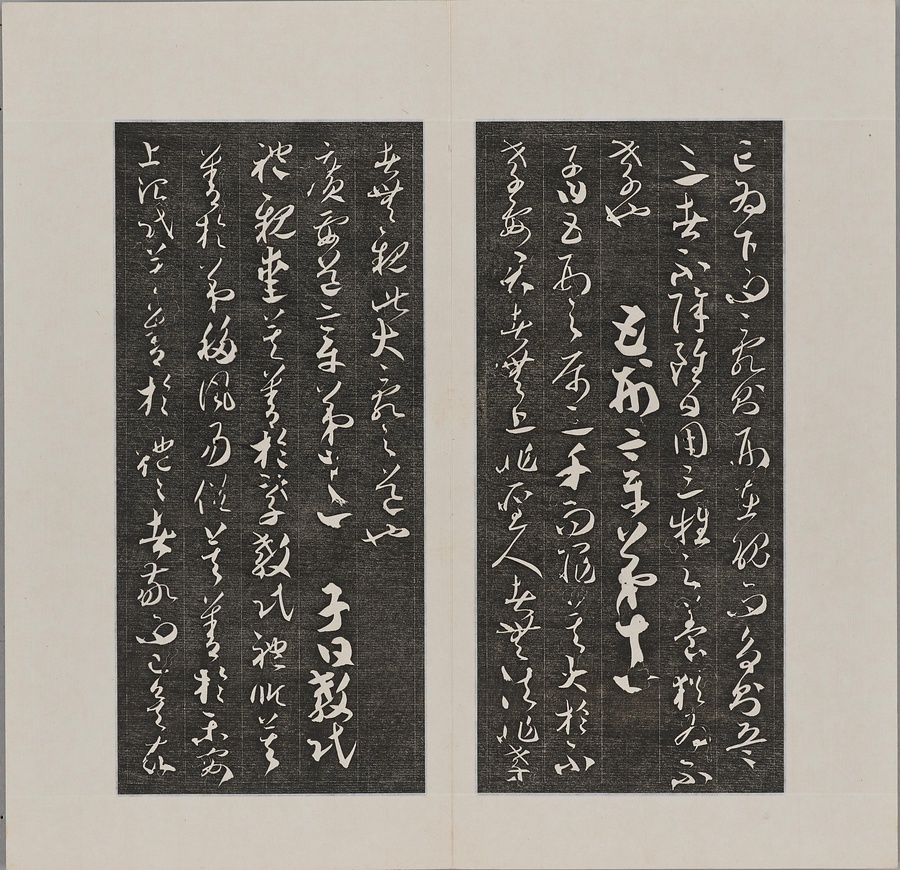 亡為下而亂則刑在醜而爭則兵
三者不除雖日用三牲之養猶為不
孝也　五刑章第十一
子曰五刑之屬三千而罪莫大於不
孝要君者無上非聖人者無法非孝
者無親此大亂之道也
廣要道章第十二　子曰教民
禮親愛莫善於孝教民禮順莫
善於弟移風易俗莫善於樂安
上治民莫善於禮々者敬而已矣故